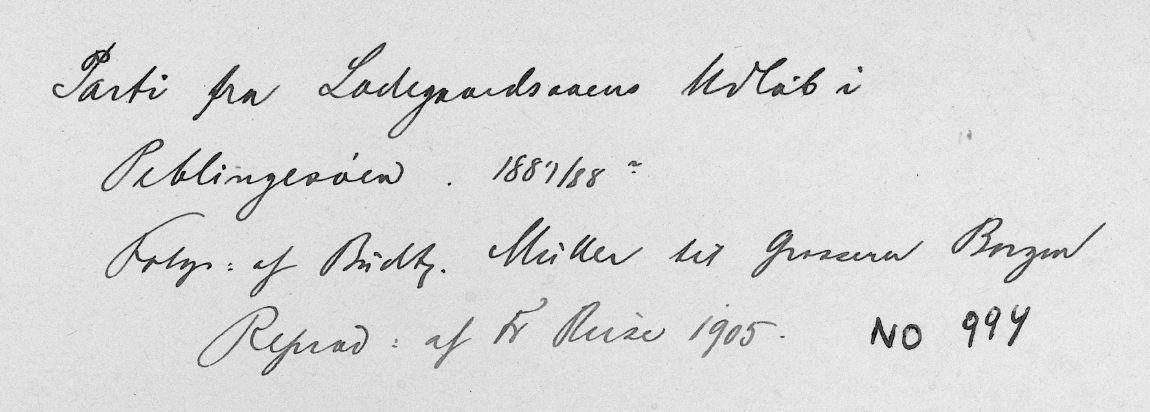 Parti fra Ladegaardsaaens Udløb i
Peblingesøen . 1887/88
Fotgr: af Budtz. Müller til Grosserer Borgen
Reprod: af Fr Riise 1905. NO 994